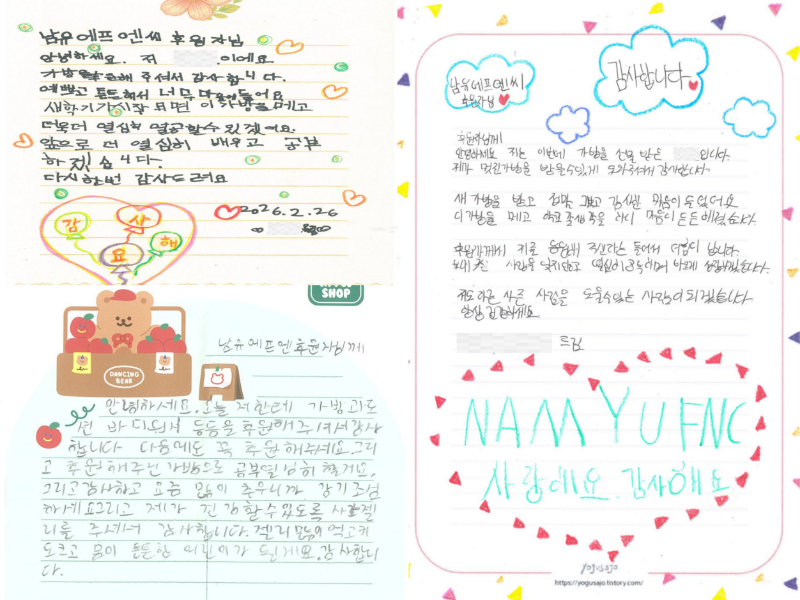 남유에프엔씨 후원자님
안녕하세요. 저 이에요
가방을 후원해 주셔서 감사합니다.
예쁘고 튼튼해서 너무 마음에 들어요
새학기가 시작 되면 이 가방을 메고
더욱더 열심히 열공할수 있겠어요.
앞으로 더 열심히 배우고 공부
하겠습니다.
다시한번 감사드려요
2026.2.26
감
사
요
해
SHOP
DANCING
BEAR
남유에프엔후원자님께
안녕하세요. 오늘 저한테 가방과
등등을 후원해주셔서 감사
합니다 다음에도 꼭 후원해주세요. 그리
고 후원해주신 가방으로 공부열심히 할게요.
그리고 감사하고 요즘 많이 추우니까 감기조심
하세요 그리고 제가 건강할수있도록 젤
리를 주셔서 감사합니다. 젤리 먹고 키
도크고 몸이 튼튼한 어린이가 될게요. 감사합니
다.
남유에프엔씨
후원자님
감사합니다
후원자님께
안녕하세요 저는 이번에 가방을 선물 받은 입니다.
제가 멋진가방을 받을수있게 도와주셔서 감사합니다.
새 가방을 받고 정말 감사한 마음이
이가방을 메고 학교
후원자님께서 저를 응원해 주신다는 들어서 더 힘이 납니다.
보내 주신 사랑을 잊지않고 열심히 공부하며 바르게
저도 다른 사람을 도울수있는 사람이 되겠습니다
항상 건강하세요
드림
NAM YU FNC
사랑해요 감사해요
yogusajo
https://yogusajo.tistory.com/